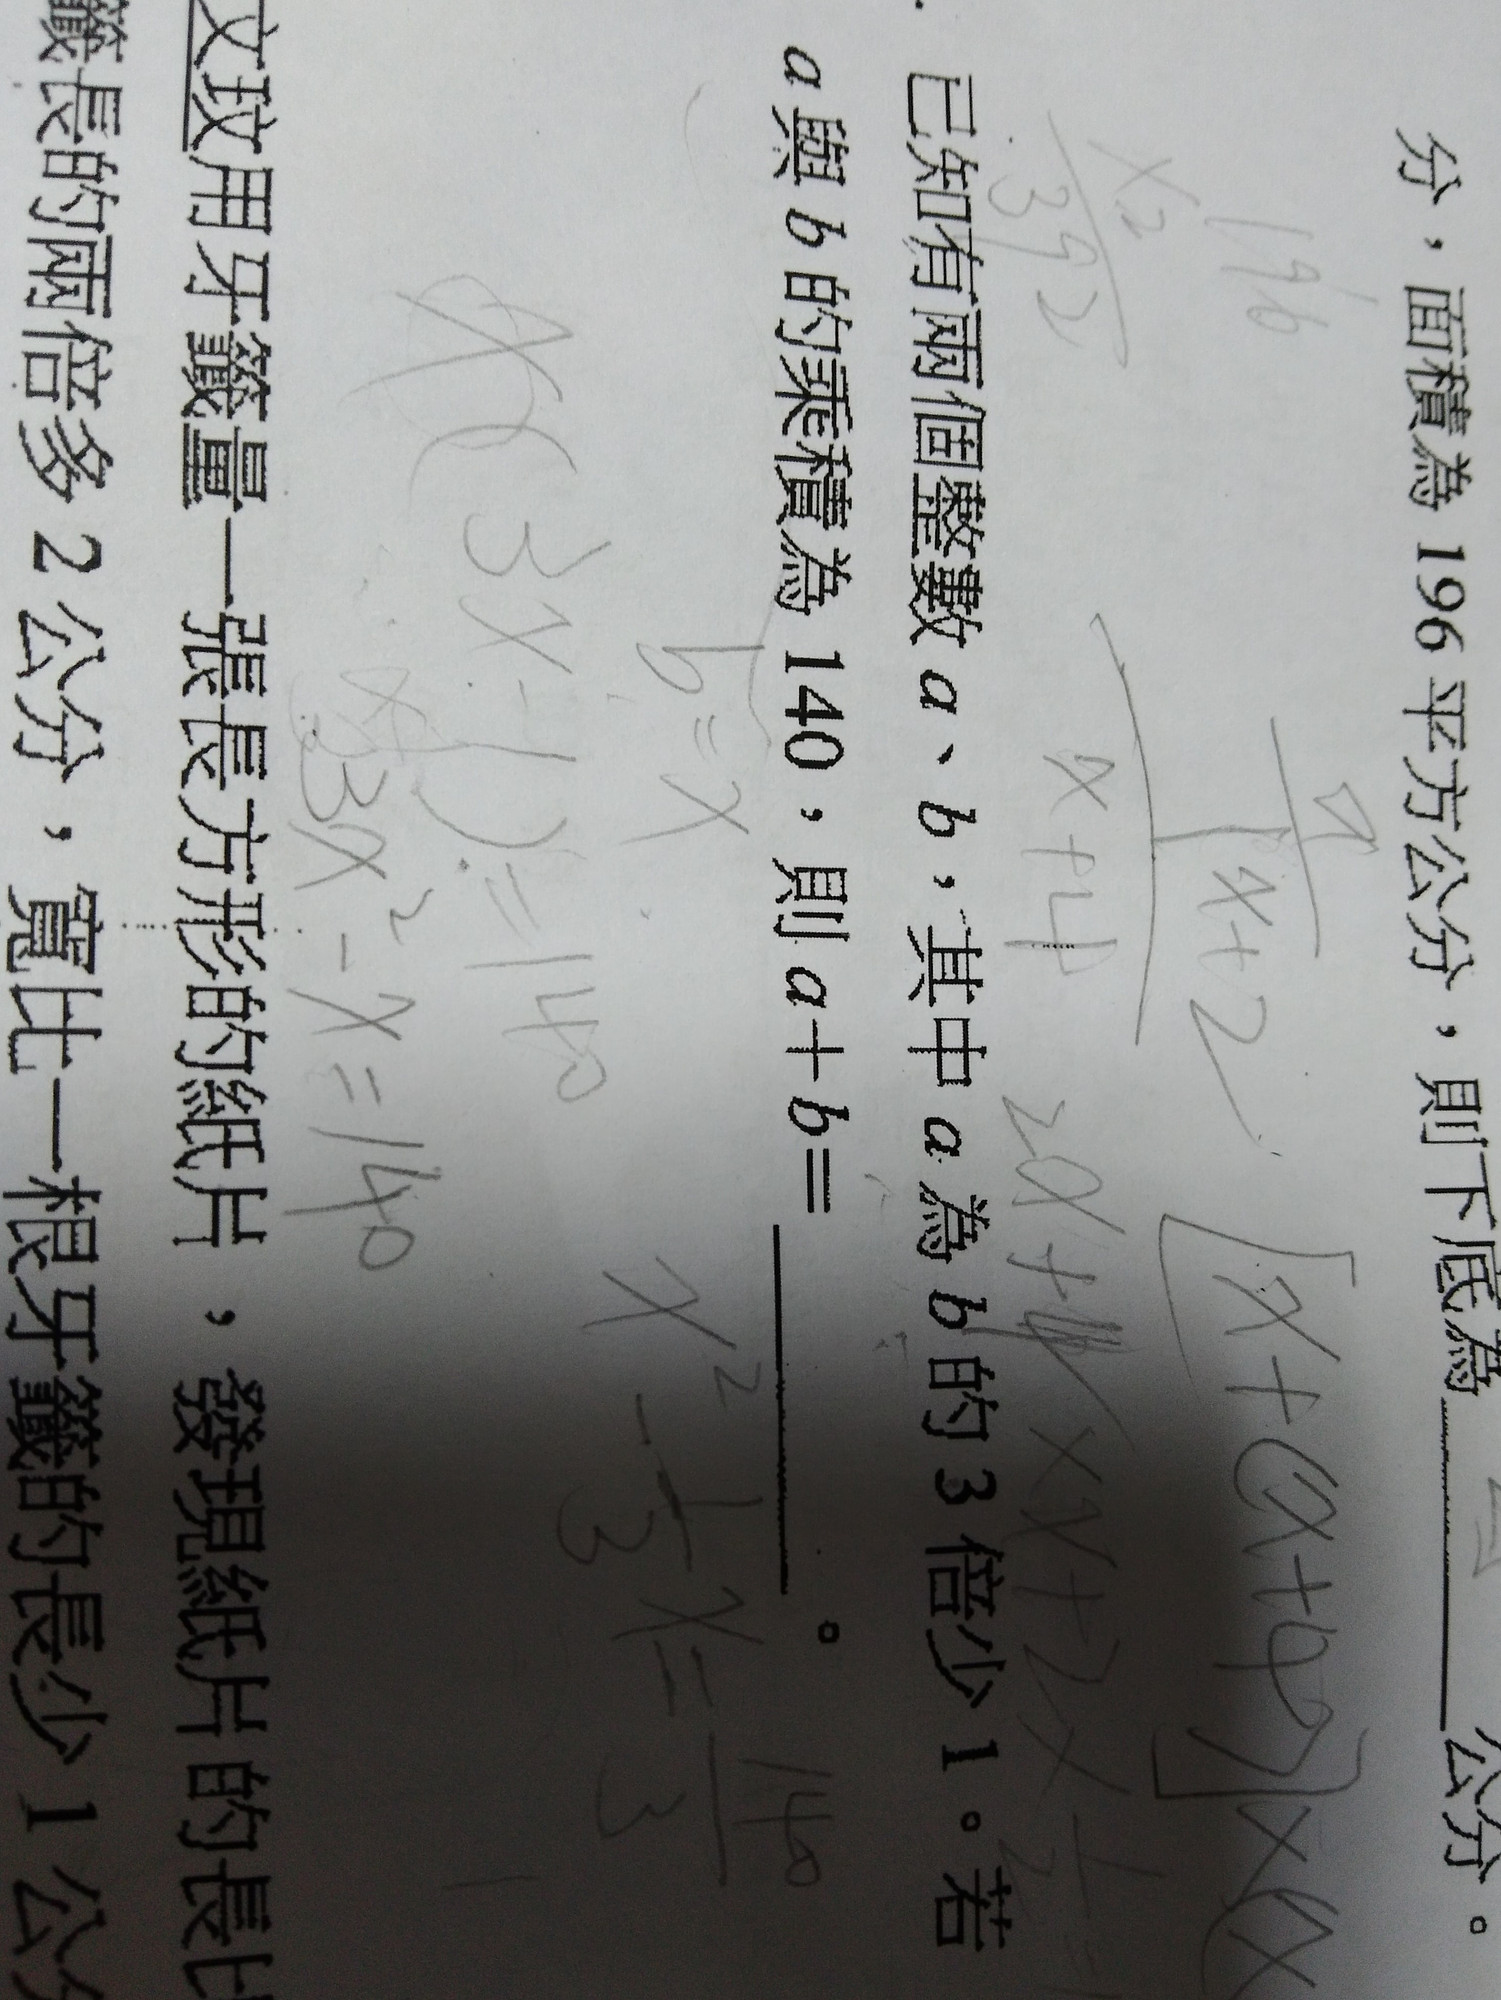 分，面積為 196 平方公分，則下底為______公分。
196
×2
392
x+2
x+4
[x+(x+4)]×(x
已知有兩個整數 a、b，其中 a 為 b 的 3 倍少 1。若
a 與 b 的乘積為 140，則 a+b=______。
b=x
x(3x-1)=140
3x²-x=140
x²-1/3x=140/3
文玟用牙籤量一張長方形的紙片，發現紙片的長比
籤長的兩倍多 2 公分，寬比一根牙籤的長少 1 公分